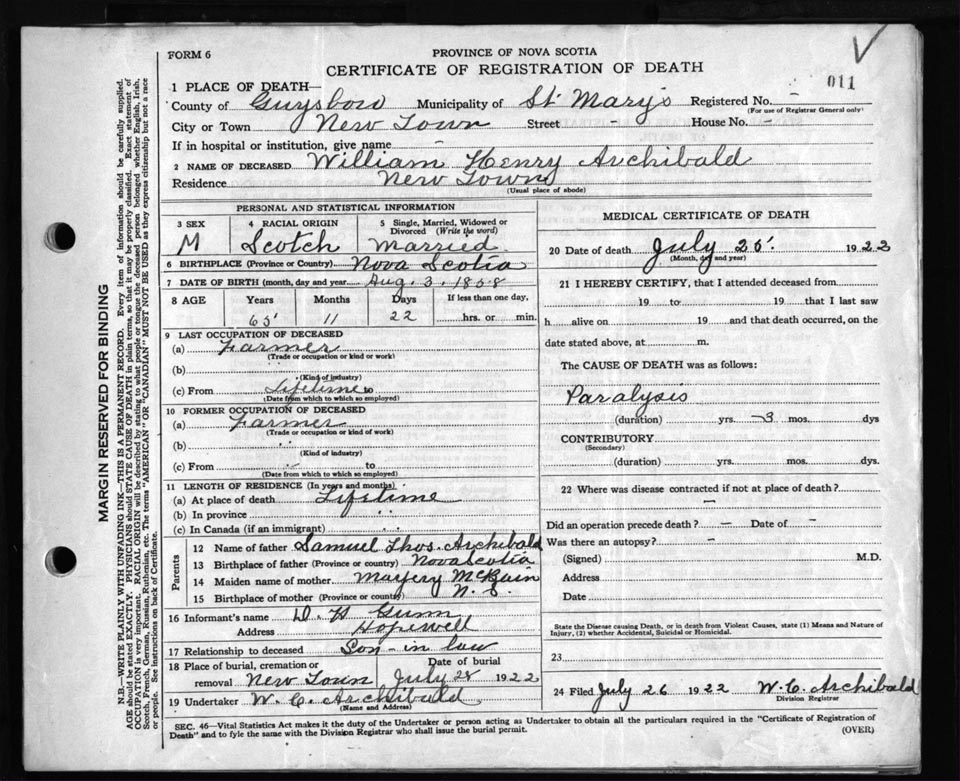 FORM 6
PROVINCE OF NOVA SCOTIA
CERTIFICATE OF REGISTRATION OF DEATH
011
1 PLACE OF DEATH—
County of Guysboro Municipality of St Mary's Registered No. -
(For use of Registrar General only)
City or Town New Town Street - House No. -
If in hospital or institution, give name -
2 NAME OF DECEASED William Henry Archibald
Residence New Town
(Usual place of abode)
PERSONAL AND STATISTICAL INFORMATION
3 SEX
M
4 RACIAL ORIGIN
Scotch
5 Single, Married, Widowed or Divorced (Write the word)
Married
6 BIRTHPLACE (Province or Country) Nova Scotia
7 DATE OF BIRTH (month, day and year) Aug. 3. 1858
8 AGE Years Months Days If less than one day,
65 11 22 hrs. or min.
9 LAST OCCUPATION OF DECEASED
(a) Farmer
(Trade or occupation or kind or work)
(b)
(Kind of industry)
(c) From Lifetime to
(Date from which to which so employed)
10 FORMER OCCUPATION OF DECEASED
(a) Farmer
(Trade or occupation or kind of work)
(b) "
(Kind of industry)
(c) From to
(Date from which to which so employed)
11 LENGTH OF RESIDENCE (In years and months)
(a) At place of death Lifetime
(b) In province "
(c) In Canada (if an immigrant) "
Parents
12 Name of father Samuel Thos. Archibald
13 Birthplace of father (Province or country) Nova Scotia
14 Maiden name of mother Marjery McBain
15 Birthplace of mother (Province or country) N. S.
16 Informant's name D H Gunn
Address Hopewell
17 Relationship to deceased Son-in law
18 Place of burial, cremation or removal New Town Date of burial July 28 1922
19 Undertaker W. C. Archibald
(Name and Address)
MEDICAL CERTIFICATE OF DEATH
20 Date of death July 25. 1922
(Month, day and year)
21 I HEREBY CERTIFY, that I attended deceased from
19 to 19 that I last saw
h alive on 19 and that death occurred, on the
date stated above, at m.
The CAUSE OF DEATH was as follows:
Paralysis
(duration) yrs. 3 mos. dys
CONTRIBUTORY
(Secondary)
(duration) yrs. mos. dys.
22 Where was disease contracted if not at place of death?
-
Did an operation precede death? - Date of -
Was there an autopsy? -
(Signed) M.D.
Address
Date
State the Disease causing Death, or in death from Violent Causes, state (1) Means and Nature of Injury, (2) whether Accidental, Suicidal or Homicidal.
23
24 Filed July 26 1922 W. C. Archibald
Division Registrar
SEC. 46—Vital Statistics Act makes it the duty of the Undertaker or person acting as Undertaker to obtain all the particulars required in the "Certificate of Registration of
Death" and to fyle the same with the Division Registrar who shall issue the burial permit.
(OVER)
MARGIN RESERVED FOR BINDING
N.B.—WRITE PLAINLY WITH UNFADING INK—THIS IS A PERMANENT RECORD. Every item of information should be carefully supplied.
AGE should be stated EXACTLY. PHYSICIANS should STATE CAUSE OF DEATH in plain terms, so that it may be properly classified. Exact statement of
OCCUPATION is very important. RACIAL ORIGIN will be described by stating to what people or tongue the deceased person belonged whether English, Irish,
Scotch, French, German, Russian, Ruthenian, etc. The terms "AMERICAN" OR "CANADIAN" MUST NOT BE USED as they express citizenship but not a race
or people. See instructions on back of Certificate.